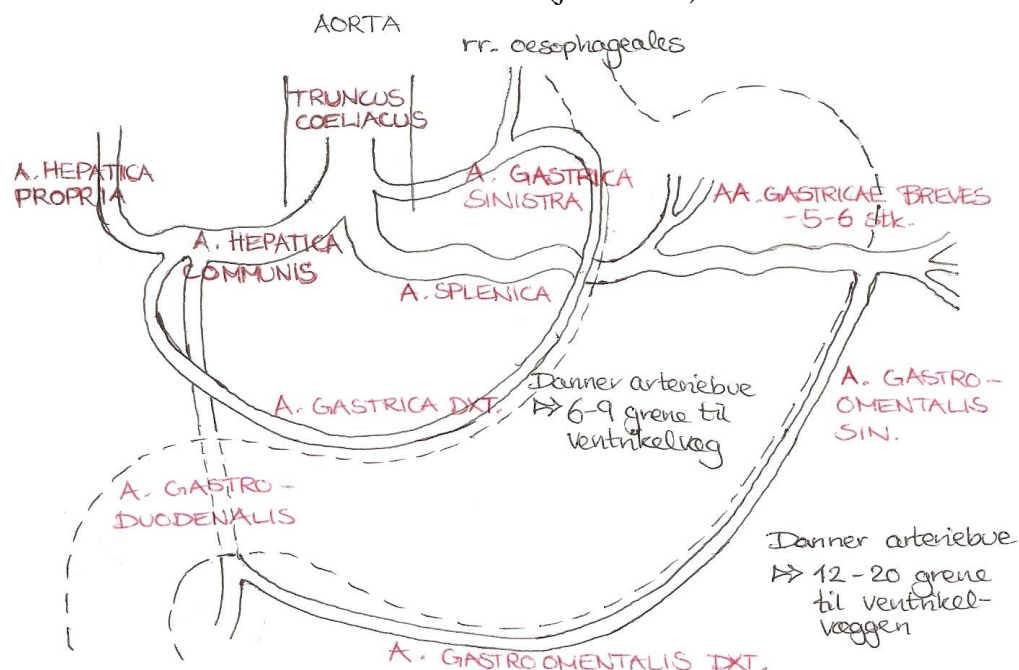 AORTA
rr. oesophageales
TRUNCUS
COELIACUS
A. HEPATICA
PROPRIA
A. GASTRICA
SINISTRA
AA. GASTRICAE BREVES
-5-6 stk.
A. HEPATICA
COMMUNIS
A. SPLENICA
A. GASTRICA DXT.
Danner arteriebue
6-9 grene til
ventrikelvæg
A. GASTRO-
OMENTALIS
SIN.
A. GASTRO-
DUODENALIS
Danner arteriebue
12-20 grene
til ventrikel-
væggen
A. GASTROOMENTALIS DXT.